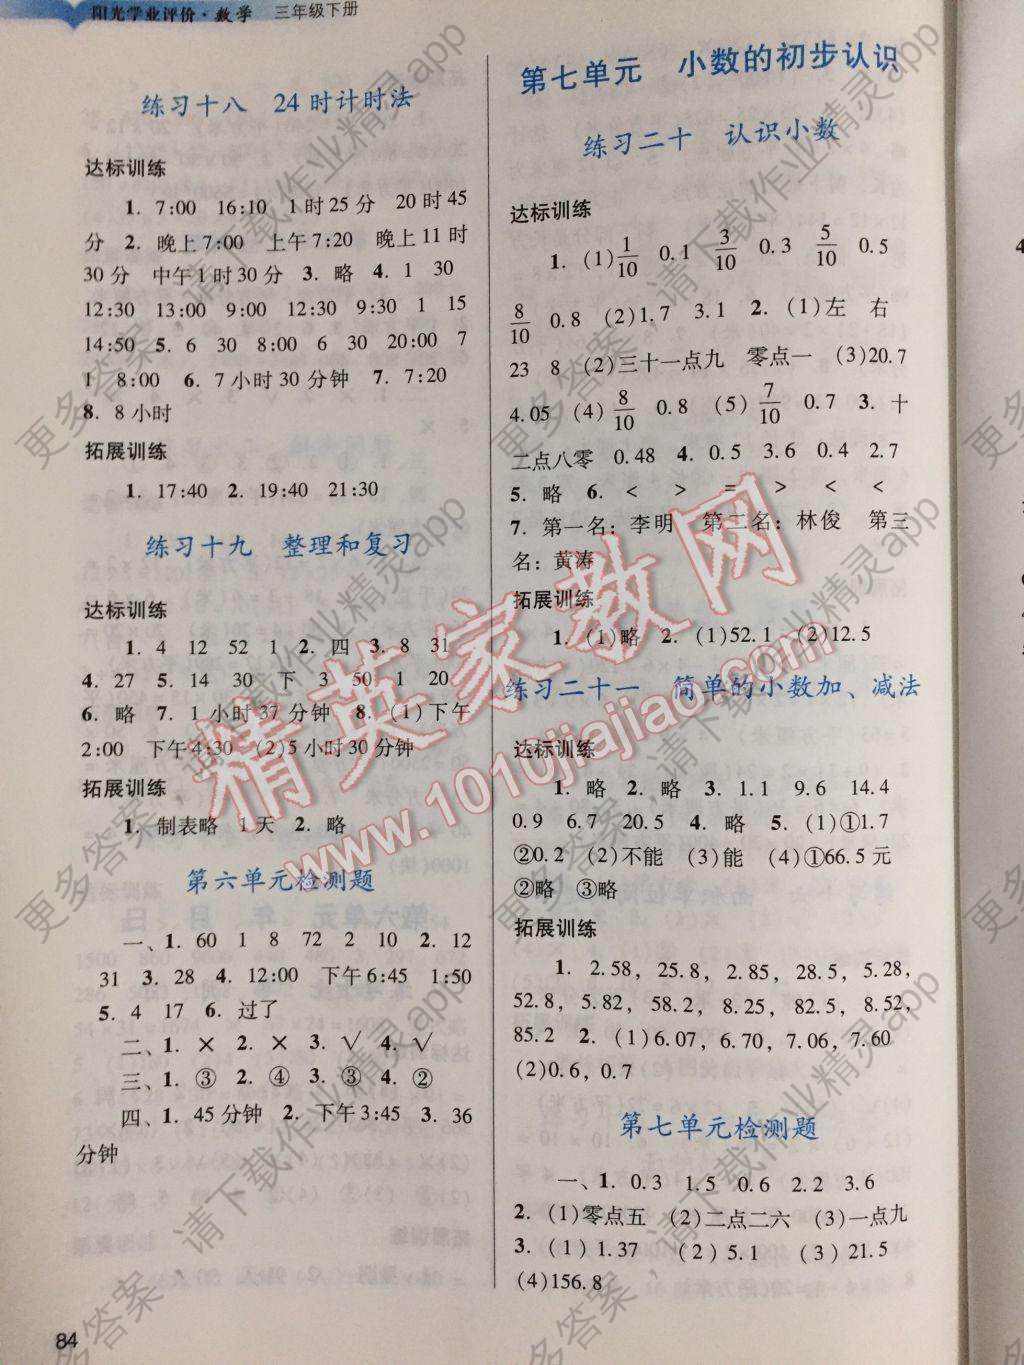 阳光学业评价·数学 三年级下册
练习十八 24时计时法
达标训练
1. 7:00 16:10 1时25分 20时45
分 2. 晚上7:00 上午7:20 晚上11时
30分 中午1时30分 3. 略 4. 1 30
12:30 13:00 9:00 12:30 9:30 1 15
14:50 5. 6 30 8:00 6 30 20:00 7
1 8:00 6. 7小时30分钟 7. 7:20
8. 8小时
拓展训练
1. 17:40 2. 19:40 21:30
练习十九 整理和复习
达标训练
1. 4 12 52 1 2. 四 3. 8 31
4. 27 5. 14 30 下 3 50 1 20
6. 略 7. 1小时37分钟 8. (1)下午
2:00 下午4:30 (2)5小时30分钟
拓展训练
1. 制表略 1天 2. 略
第六单元检测题
一、1. 60 1 8 72 2 10 2. 12
31 3. 28 4. 12:00 下午6:45 1:50
5. 4 17 6. 过了
二、1. × 2. × 3. √ 4. √
三、1. ③ 2. ④ 3. ③ 4. ②
四、1. 45分钟 2. 下午3:45 3. 36
分钟
84
第七单元 小数的初步认识
练习二十 认识小数
达标训练
1. (1) 1/10 0.1 3/10 0.3 5/10 0.5
8/10 0.8 (2)1.7 3.1 2. (1)左 右
23 8 (2)三十一点九 零点一 (3)20.7
4.05 (4) 8/10 0.8 (5) 7/10 0.7 3. 十
二点八零 0.48 4. 0.5 3.6 0.4 2.7
5. 略 6. < > = > < <
7. 第一名：李明 第二名：林俊 第三
名：黄涛
拓展训练
1. (1)略 2. (1)52.1 (2)12.5
练习二十一 简单的小数加、减法
达标训练
1. 略 2. 略 3. 1.1 9.6 14.4
0.9 6.7 20.5 4. 略 5. (1)①1.7
②0.2 (2)不能 (3)能 (4)①66.5元
②略 ③略
拓展训练
1. 2.58，25.8，2.85，28.5，5.28，
52.8，5.82，58.2，8.25，82.5，8.52，
85.2 2. (1)6.07，6.70，7.06，7.60
(2)0.6，0.7
第七单元检测题
一、1. 0.3 1.5 0.6 2.2 3.6
2. (1)零点五 (2)二点二六 (3)一点九
3. (1) 1.37 (2) 5.1 (3) 21.5
(4)156.8
精英家教网
www.1010jiajiao.com
更多答案，请下载作业精灵app
更多答案，请下载作业精灵app
更多答案，请下载作业精灵app
更多答案，请下载作业精灵app